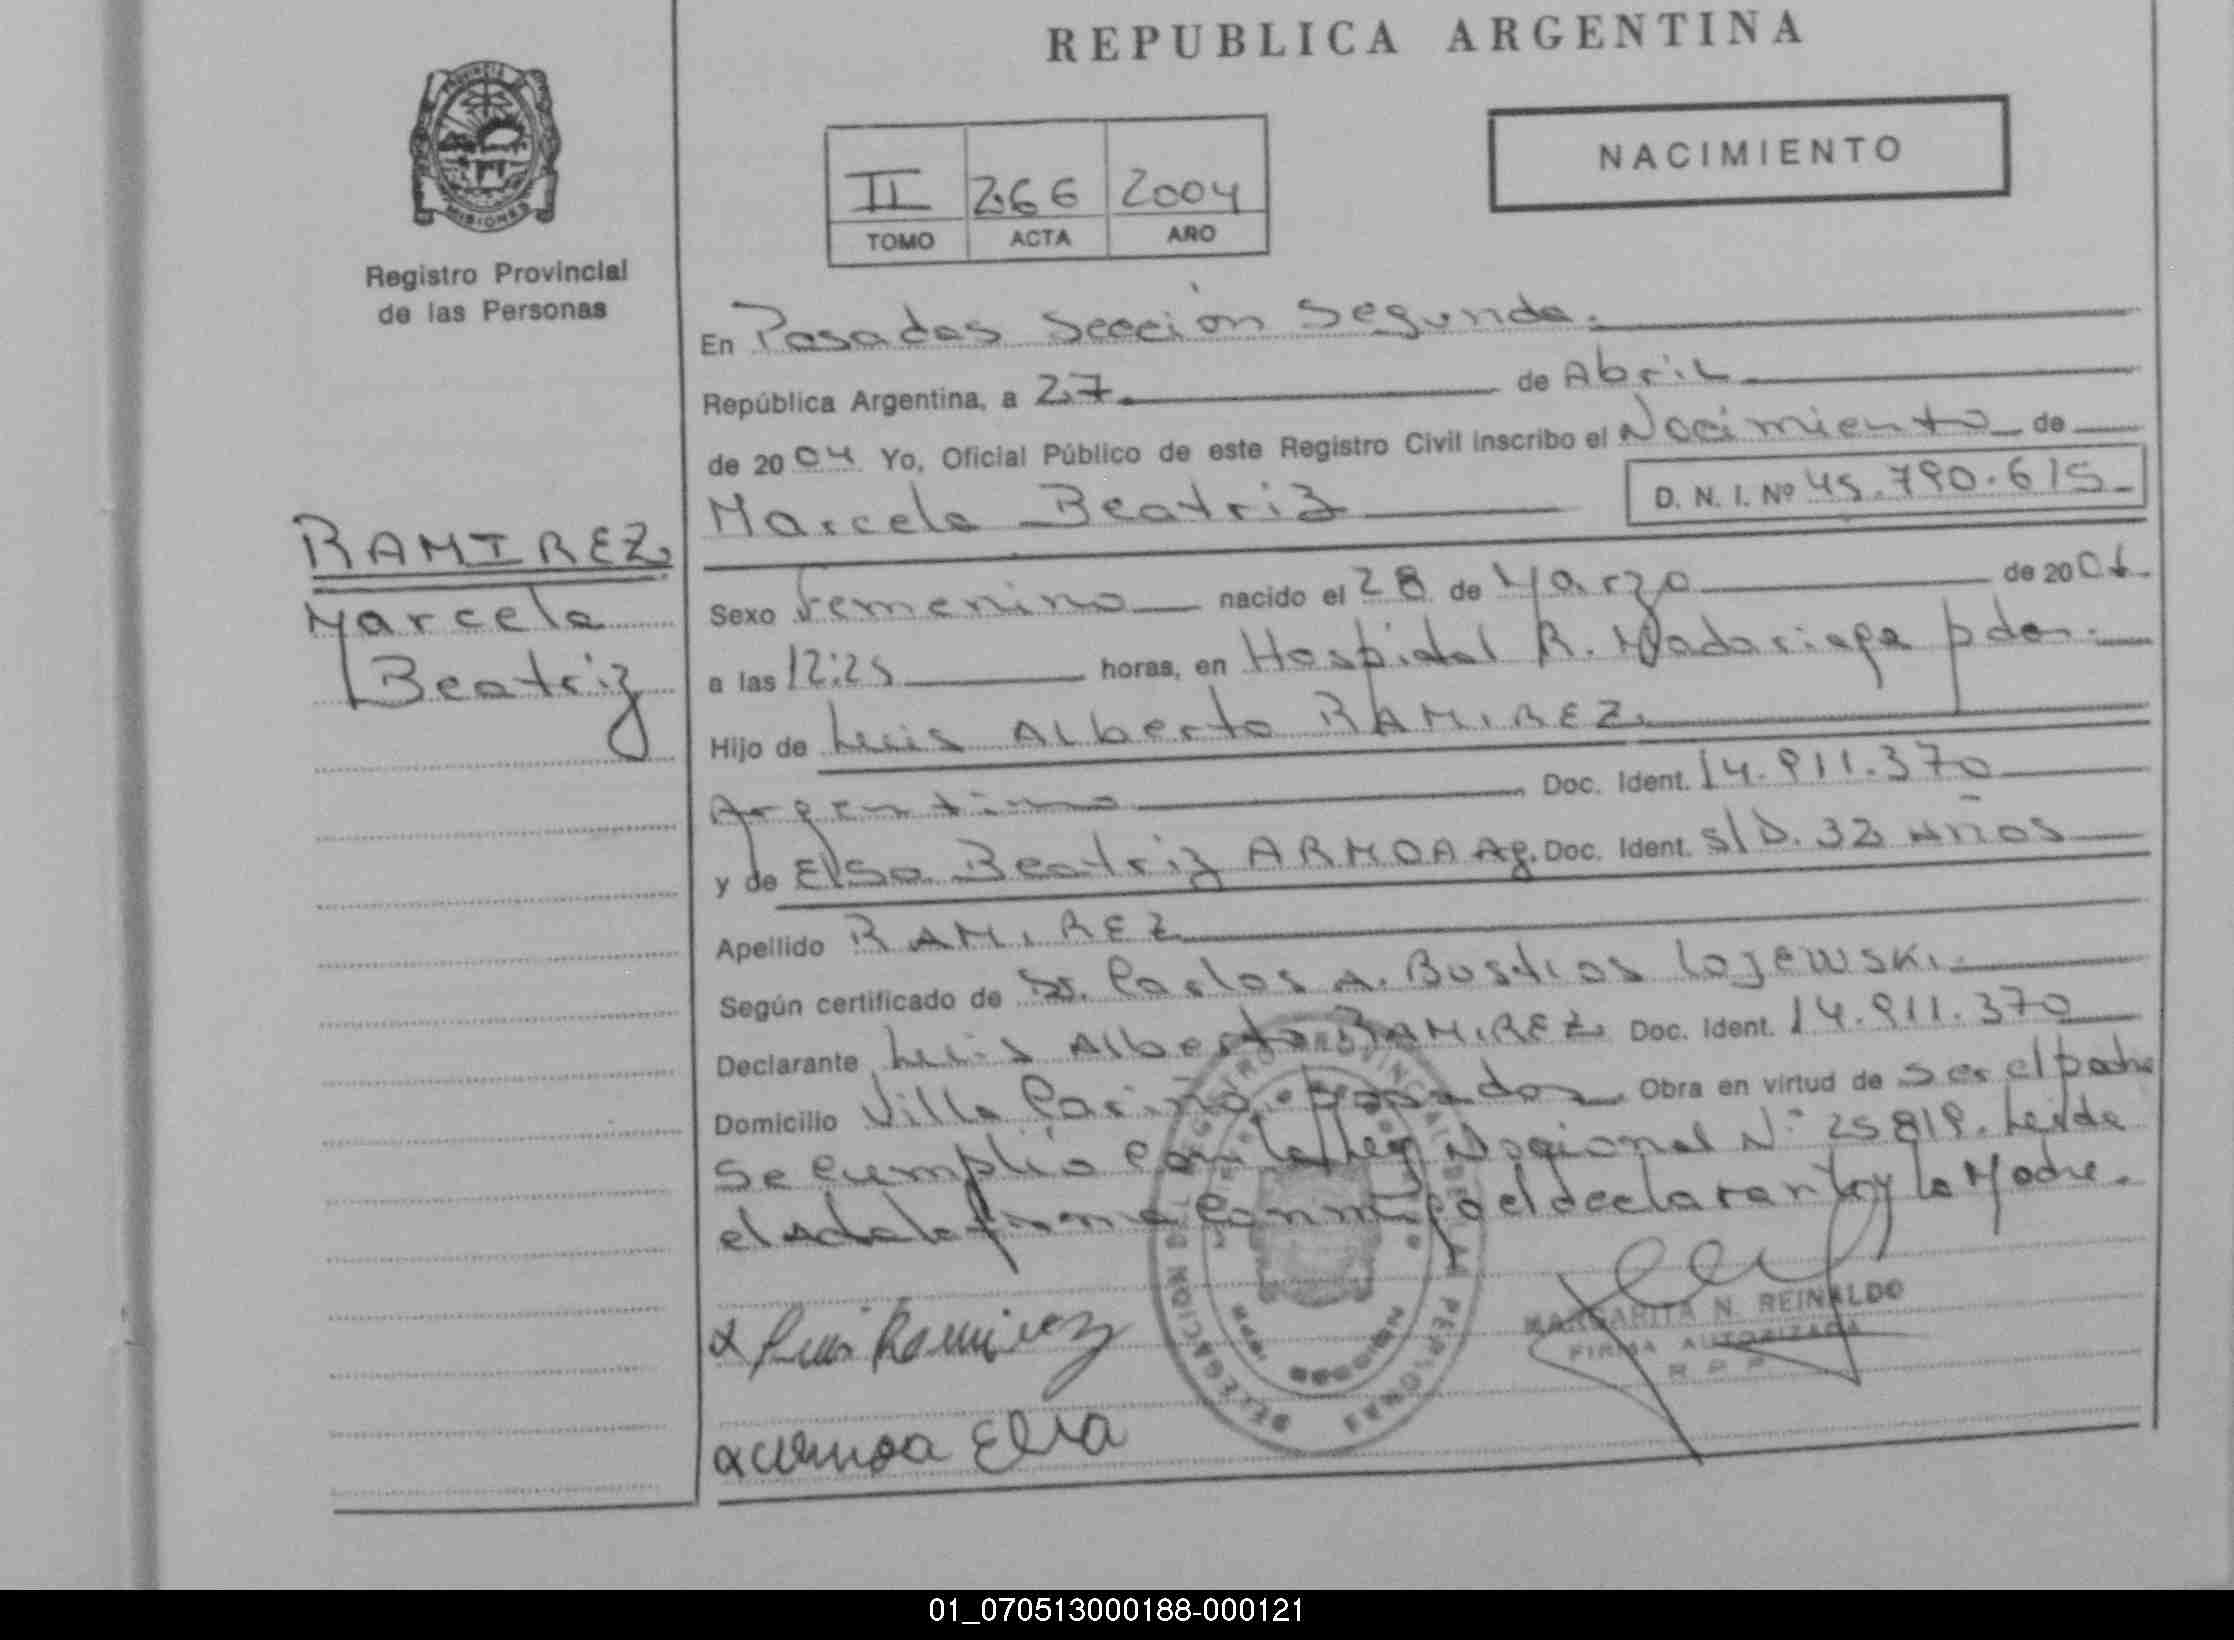 REPUBLICA ARGENTINA
PROVINCIA DE
MISIONES
Registro Provincial
de las Personas
NACIMIENTO
II 266 2004
TOMO ACTA AÑO
En Posadas Sección Segunda.
República Argentina, a 27 de Abril
de 2004 Yo, Oficial Público de este Registro Civil inscribo el Nacimiento de
Marcela Beatriz D. N. I. Nº 45.790.615
RAMIREZ
Marcela
Beatriz
Sexo Femenino nacido el 28 de Marzo de 2004
a las 12:25 horas, en Hospital R. Madariaga pdas.
Hijo de Luis Alberto RAMIREZ
Argentino Doc. Ident. 14.911.370
y de Elsa Beatriz ARMOA Ag. Doc. Ident. S/D. 32 años
Apellido RAMIREZ
Según certificado de Dr. Carlos A. Bustios Lojewski.
Declarante Luis Alberto RAMIREZ Doc. Ident. 14.911.370
Domicilio Villa Cariño posadas Obra en virtud de ser el padre
Se cumplió con la Ley Nacional Nº 25819. Leída
el acta la firma conmigo el declarante y la Madre.
Luis Ramirez
MARGARITA N. REINALDO
FIRMA AUTORIZADA
R P P
Armoa Elsa
REGISTRO PROVINCIAL DE LAS PERSONAS
DELEGACION
MISIONES
01_070513000188-000121